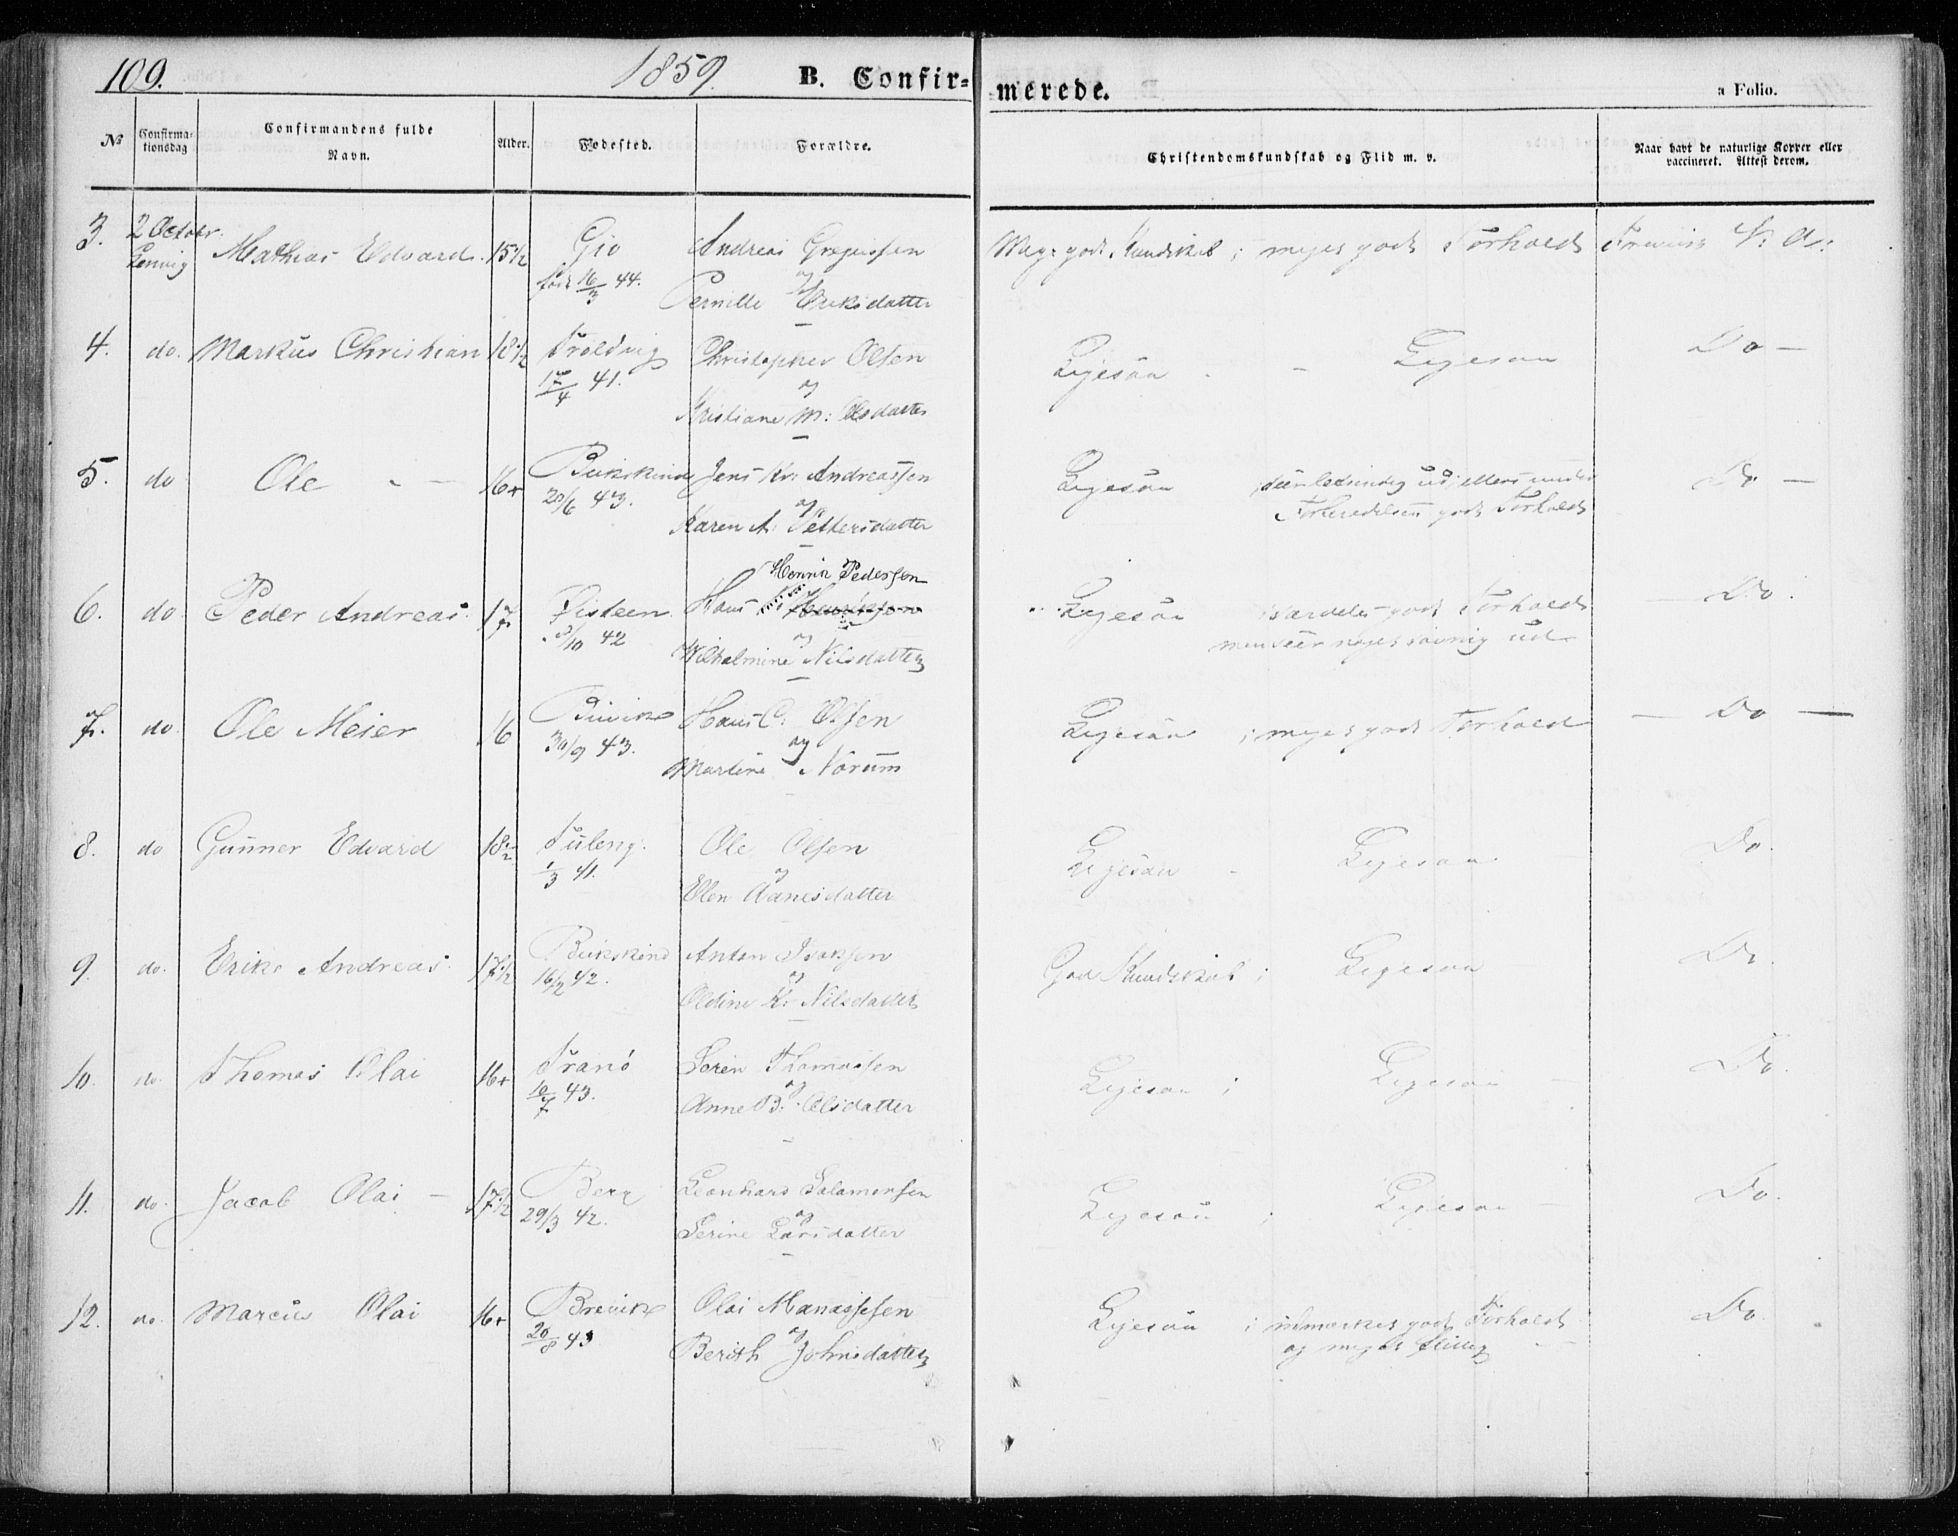 109.
1859.
B. Confir=
merede.
a Folio.
No
Confirma-
tionsdag
Confirmandens fulde
Navn.
Alder.
Fødested.
Forældre.
Christendomskundskab og Flid m. v.
Naar havt de naturlige Kopper eller
vaccineret. Attest derom.
3. 2 October Mathias Edvard. 15½ Gio Andreas Gregussen Mag: godt Kundskab; meget godt Forhold
Lenvig født 16/3 44. og
Pernille Eriksdatter
4. do. Markus Christian 18½ Troldvig Christopher Olsen Ligesaa - - Ligesaa Do -
17/4 41. og
Kristiane M: Olsdatter
5. do Ole - - 16+ Bukskind Jens Kr: Andreassen Ligesaa ellers under Do -
20/6 43. og Forberedelsen godt Forhold
Karen A: Pettersdatter
Henrik Pedersen
6. do Peder Andreas. 17 Fisteen Hans Ligesaa ; særdeles godt Forhold Do.
/10 42 og men seer ud
Wilhalmine Nilsdatter
7. do. Ole Meier 16 Buvik Hans C: Olsen Ligesaa ; meget godt Forhold - Do -
30/9 43. og
Martine Norum
8. do Gunner Edvard 18½ Ole Olsen Ligesaa - Ligesaa Do.
1/3 41. og
Elen Hansdatter
9. do. Erik Andreas. 17½ Bukskind Anton Isaksen God Kundskab ; Ligesaa Do.
16/2 42. og
Oldine K: Nilsdatter
10. do. Thomas Olai 16+ Tranö Sören Thomassen Ligesaa ; Ligesaa - Do.
10/7 43. og
Anne B: Olsdatter
11. do. Jacob Olai - 17½ Berg Leonhard Salamonsen Ligesaa ; Ligesaa - Do.
29/3 42. og
Serine Larsdatter
12. do. Marcus Olai 16+ Brevik Olai Manassesen Ligesaa ; udmærket godt Forhold Do.
20/8 43 og og meget flittig -
Berith Johnsdatter